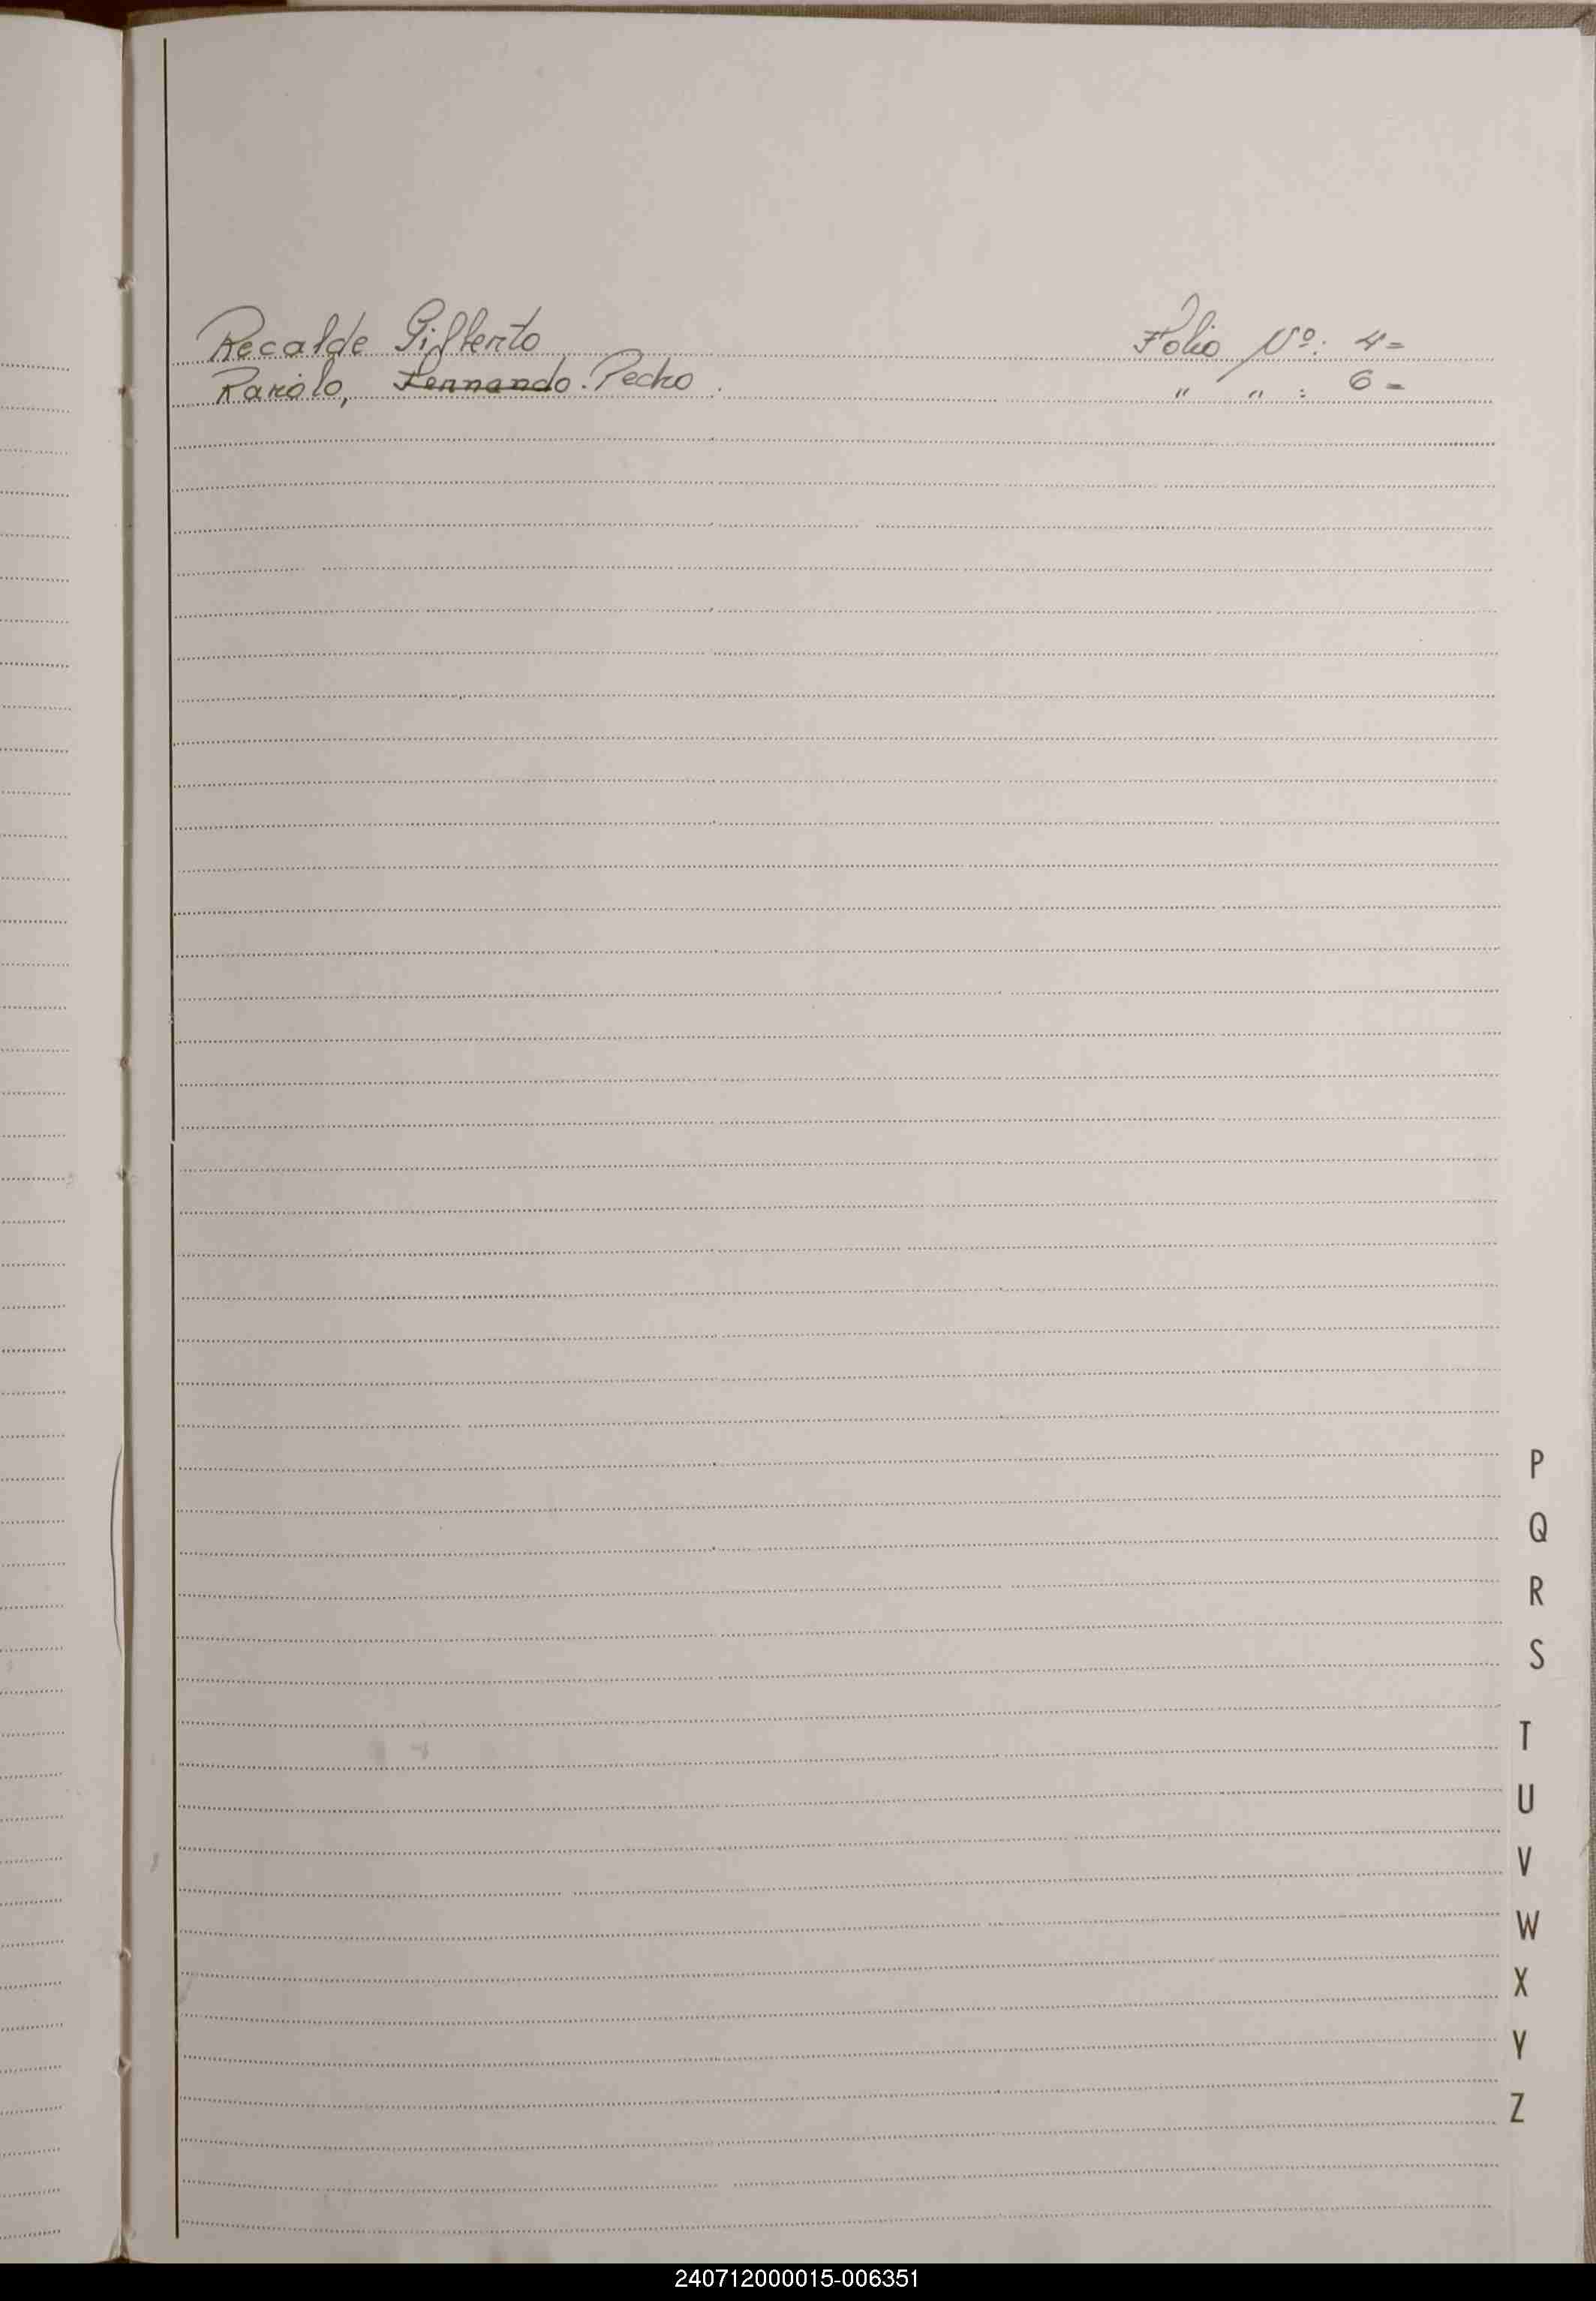 Recalde Gilberto Folio Nº: 4=
Rariólo, Fernando. Pedro. " " : 6=
P
Q
R
S
T
U
V
W
X
Y
Z
240712000015-006351